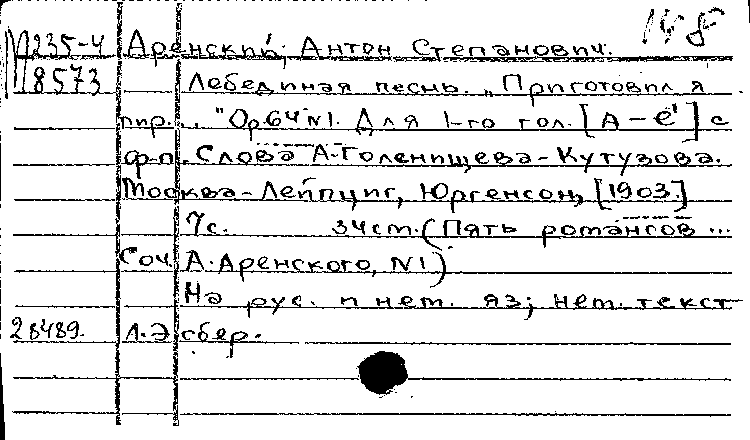 148
М235-4 Аренский, Антон Степанович.
8573 Лебединая песнь. „Приготовил я
пир..." Ор64 N1. Для 1-го гол. [A – e¹] с
ф-п. Слова А. Голенищева-Кутузова.
Москва-Лейпциг, Юргенсон, [1903.]
7с. 34см. (Пять романсов ...
Соч. А. Аренского, N1)
На рус. и нем. яз; нем. текст
28489. Л. Эсбер.